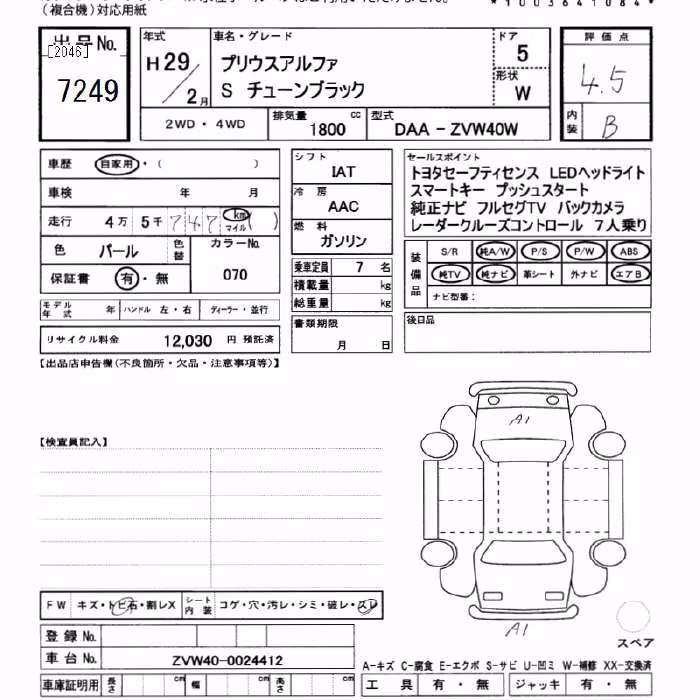 (複合機)対応用紙
*1003641084*
出品No.
[2046]
7249
年式
H29/2月
車名・グレード
プリウスアルファ
S チューンブラック
ドア
5
形状
W
2WD・4WD
排気量 1800 cc
型式 DAA-ZVW40W
評価点
4.5
内装
B
車歴 自家用・( )
車検 年 月
走行 4万 5千 7 4 7 km マイル ( )
色 パール 色替 カラーNo. 070
保証書 有・無
モデル年式 年 ハンドル 左・右 ディーラー・並行
リサイクル料金 12,030 円 預託済
シフト
IAT
冷房
AAC
燃料
ガソリン
乗車定員 7 名
積載量 kg
総重量 kg
書類期限
月 日
セールスポイント
トヨタセーフティセンス LEDヘッドライト
スマートキー プッシュスタート
純正ナビ フルセグTV バックカメラ
レーダークルーズコントロール 7人乗り
装備品
S/R 純A/W P/S P/W ABS
純TV 純ナビ 革シート 外ナビ エアB
ナビ型番:
後日品
【出品店申告欄(不良箇所・欠品・注意事項等)】
【検査員記入】
A1
A1
スペア
FW キズ・トビ石・割レX シート内装 コゲ・穴・汚レ・シミ・破レ・スレ
登録No.
車台No. ZVW40-0024412
車庫証明用 長さ cm 幅 cm 高さ cm
A-キズ C-腐食 E-エクボ S-サビ U-凹ミ W-補修 XX-交換済
工具 有・無 ジャッキ 有・無